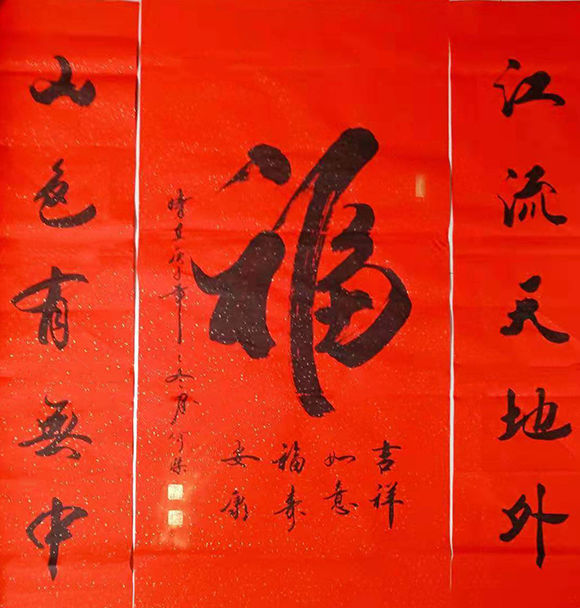 江流天地外
福
吉祥
如意
福寿
安康
山色有無中